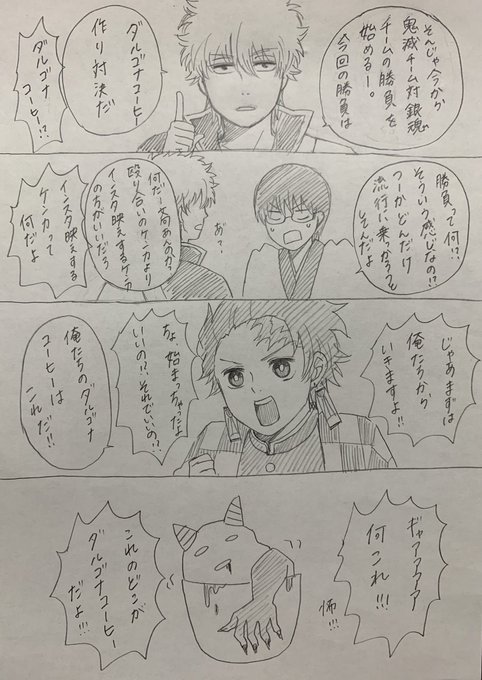 そんじゃ今から
鬼滅チーム対銀魂
チームの勝負を
始めるー。
今回の勝負は
ダルゴナコーヒー
作り対決だ
ダルゴナ
コーヒー!?
勝負って何!?
そういう感じなの!?
つーかどんだけ
流行に乗っかろうと
してんだよ
あ?
何だー文句あんのかっ
殴り合いのケンカより
インスタ映えするケンカ
の方がいいだろ
インスタ映えする
ケンカって
何だよ
じゃあまずは
俺たちから
いきますよ!!
ちょ、始まっちゃったよ
いいの!?それでいいの!?
俺たちのダルゴナ
コーヒーは
これだ!!
ギャアアアア
何これ!!!
怖!!!
これのどこが
ダルゴナコーヒー
だよ!!!